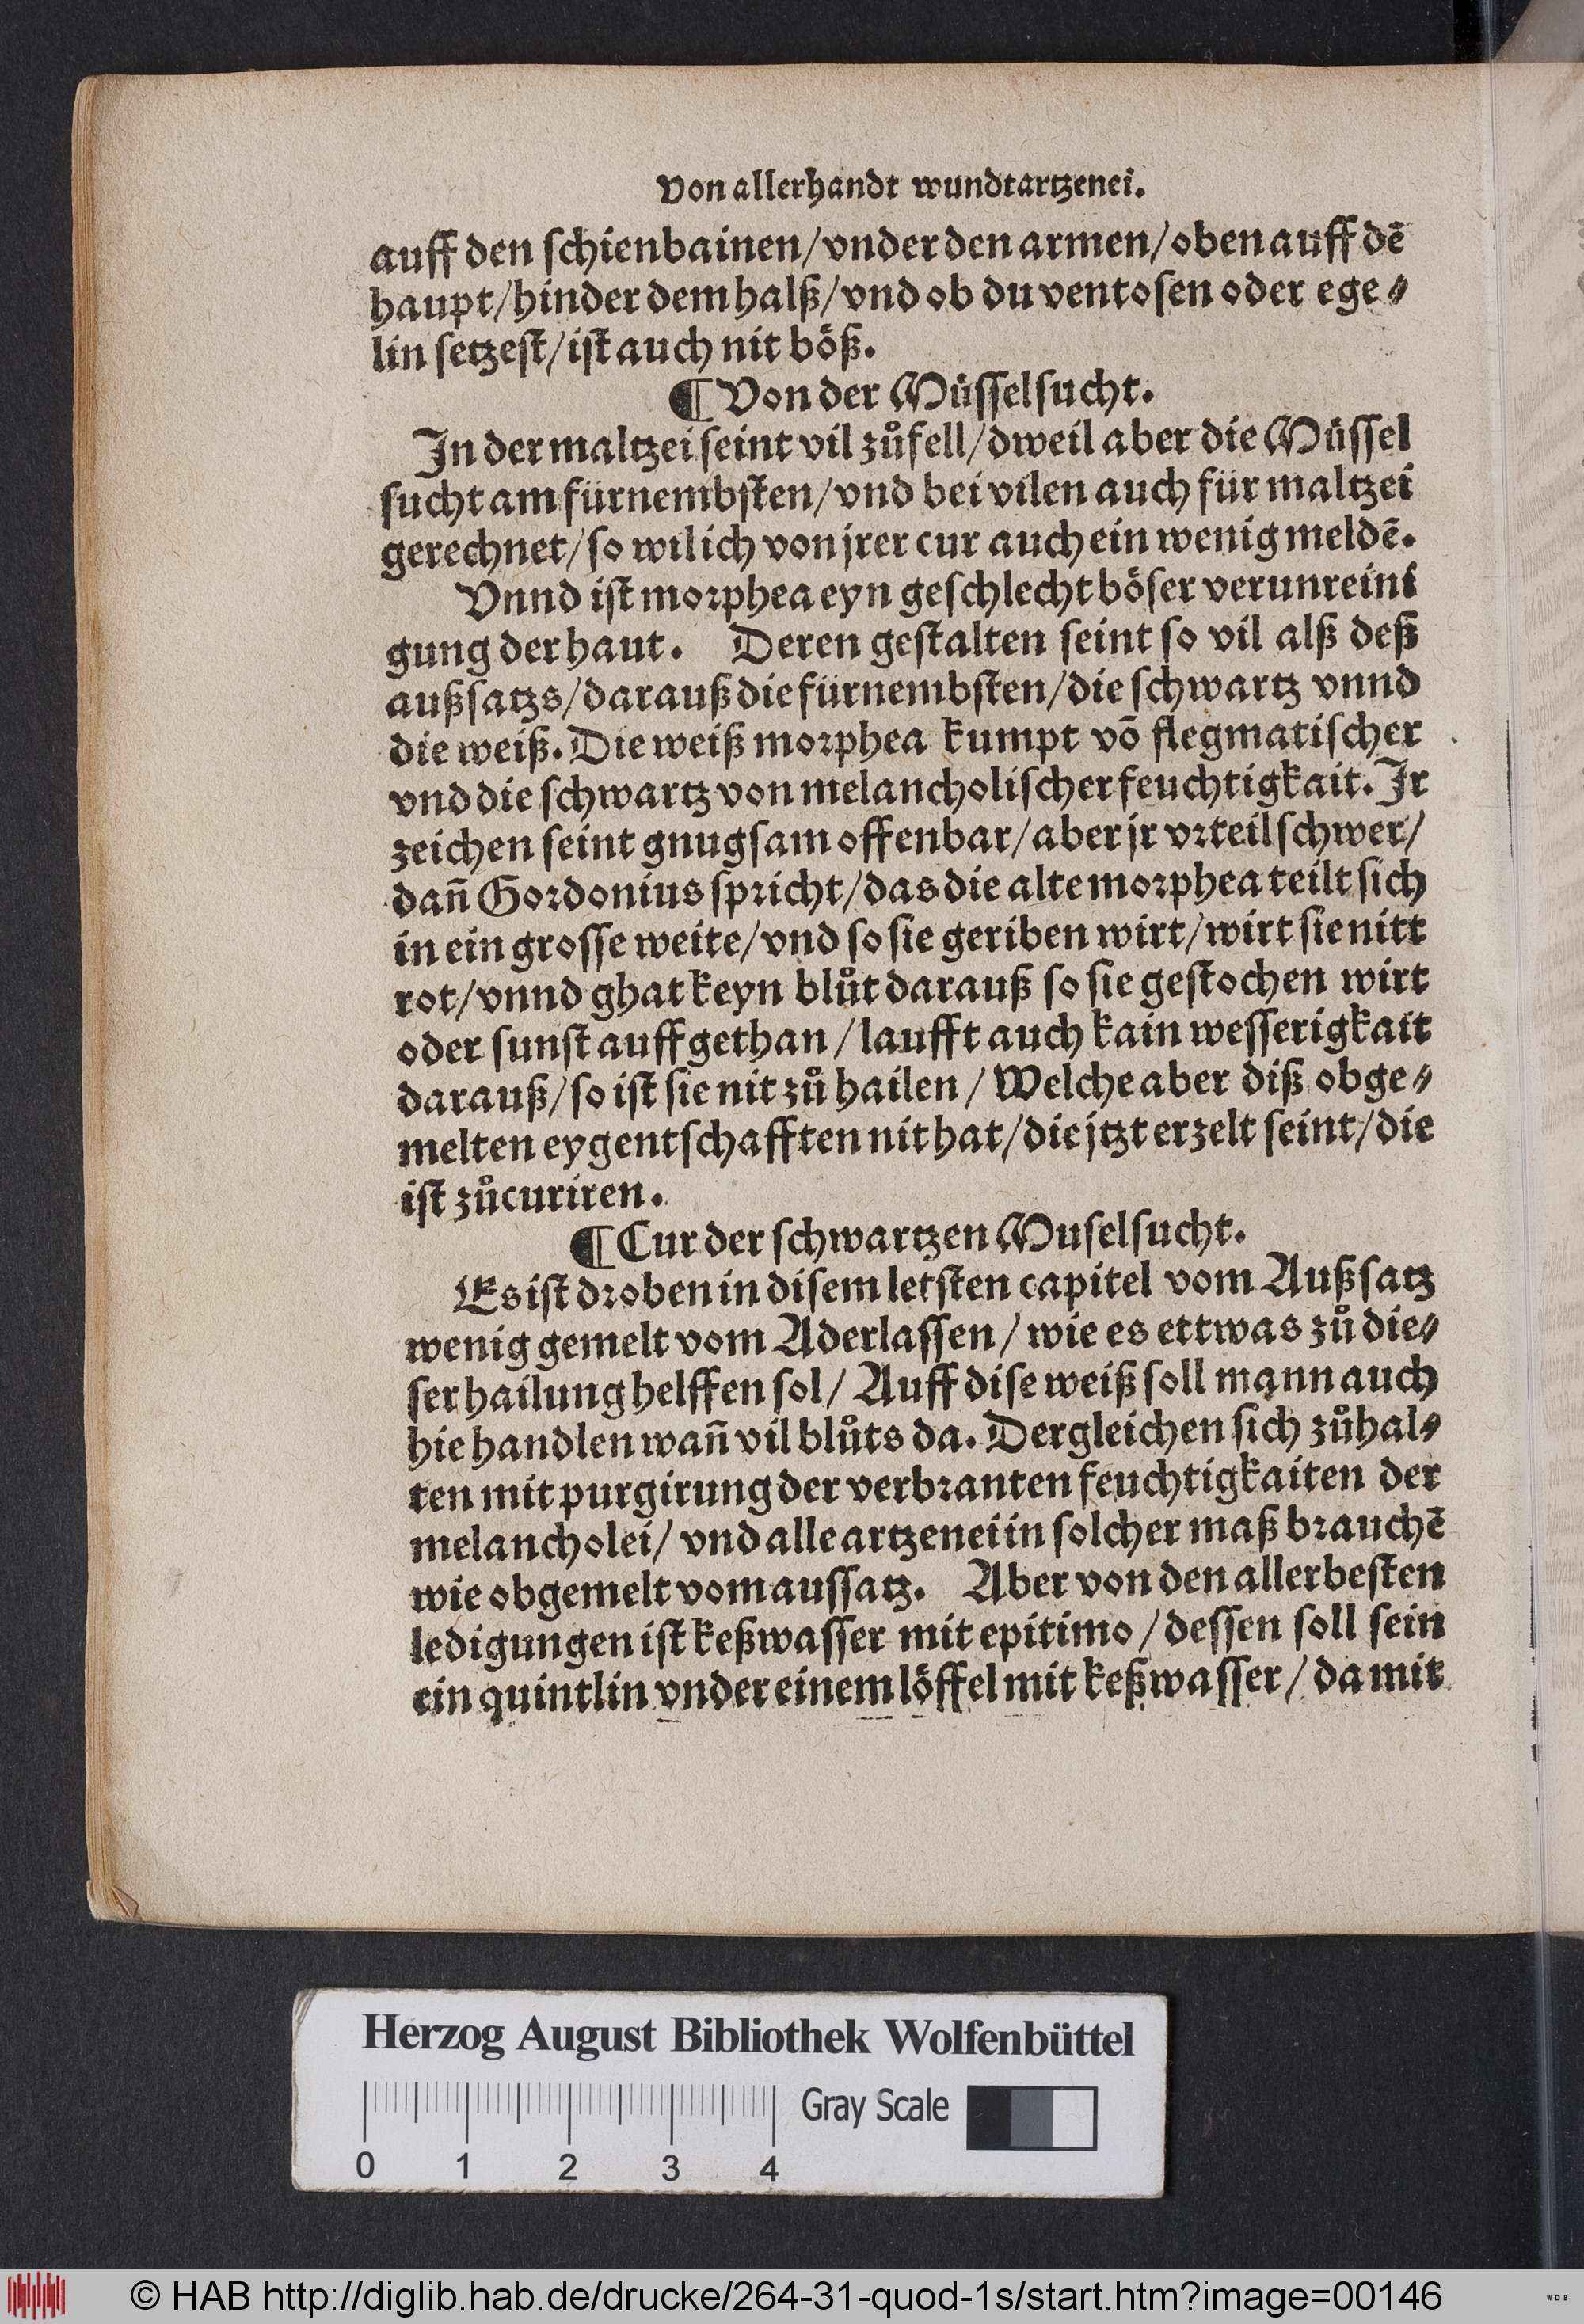 Von allerhandt wundtartzenei.
auff den ſchienbainen/vnder den armen/oben auff dē
haupt/hinder dem halß/vnd ob du ventoſen oder ege⸗
lin ſetzeſt/iſt auch nit böß.
¶ Von der Müſſelſucht.
In der maltzei ſeint vil zůfell/dweil aber die Müſſel
ſucht am fürnembſten/vnd bei vilen auch für maltzei
gerechnet/ſo wil ich von jrer cur auch ein wenig meldē.
Vnnd iſt morphea eyn geſchlecht böſer verunreini
gung der haut. Deren geſtalten ſeint ſo vil alß deß
außſatzs/darauß die fürnembſten/die ſchwartz vnnd
die weiß. Die weiß morphea kumpt vō flegmatiſcher
vnd die ſchwartz von melancholiſcher feuchtigkait. Ir
zeichen ſeint gnugſam offenbar/aber jr vrteil ſchwer/
dañ Gordonius ſpricht/das die alte morphea teilt ſich
in ein groſſe weite/vnd ſo ſie geriben wirt/wirt ſie nitt
rot/vnnd ghat keyn blůt darauß ſo ſie geſtochen wirt
oder ſunſt auffgethan/laufft auch kain weſſerigkait
darauß/ſo iſt ſie nit zů hailen/Welche aber diß obge⸗
melten eygentſchafften nit hat/die jtzt erzelt ſeint/die
iſt zůcuriren.
¶ Cur der ſchwartzen Muſelſucht.
Es iſt droben in diſem letſten capitel vom Außſatz
wenig gemelt vom Aderlaſſen/wie es ettwas zů die⸗
ſer hailung helffen ſol/Auff diſe weiß ſoll mann auch
hie handlen wañ vil blůts da. Dergleichen ſich zůhal⸗
ten mit purgirung der verbranten feuchtigkaiten der
melancholei/vnd alle artzenei in ſolcher maß brauchē
wie obgemelt vom auſſatz. Aber von den allerbeſten
ledigungen iſt keßwaſſer mit epitimo/deſſen ſoll ſein
ein quintlin vnder einem löffel mit keßwaſſer/damit
Herzog August Bibliothek Wolfenbüttel
Gray Scale
0 1 2 3 4
© HAB http://diglib.hab.de/drucke/264-31-quod-1s/start.htm?image=00146
WDB